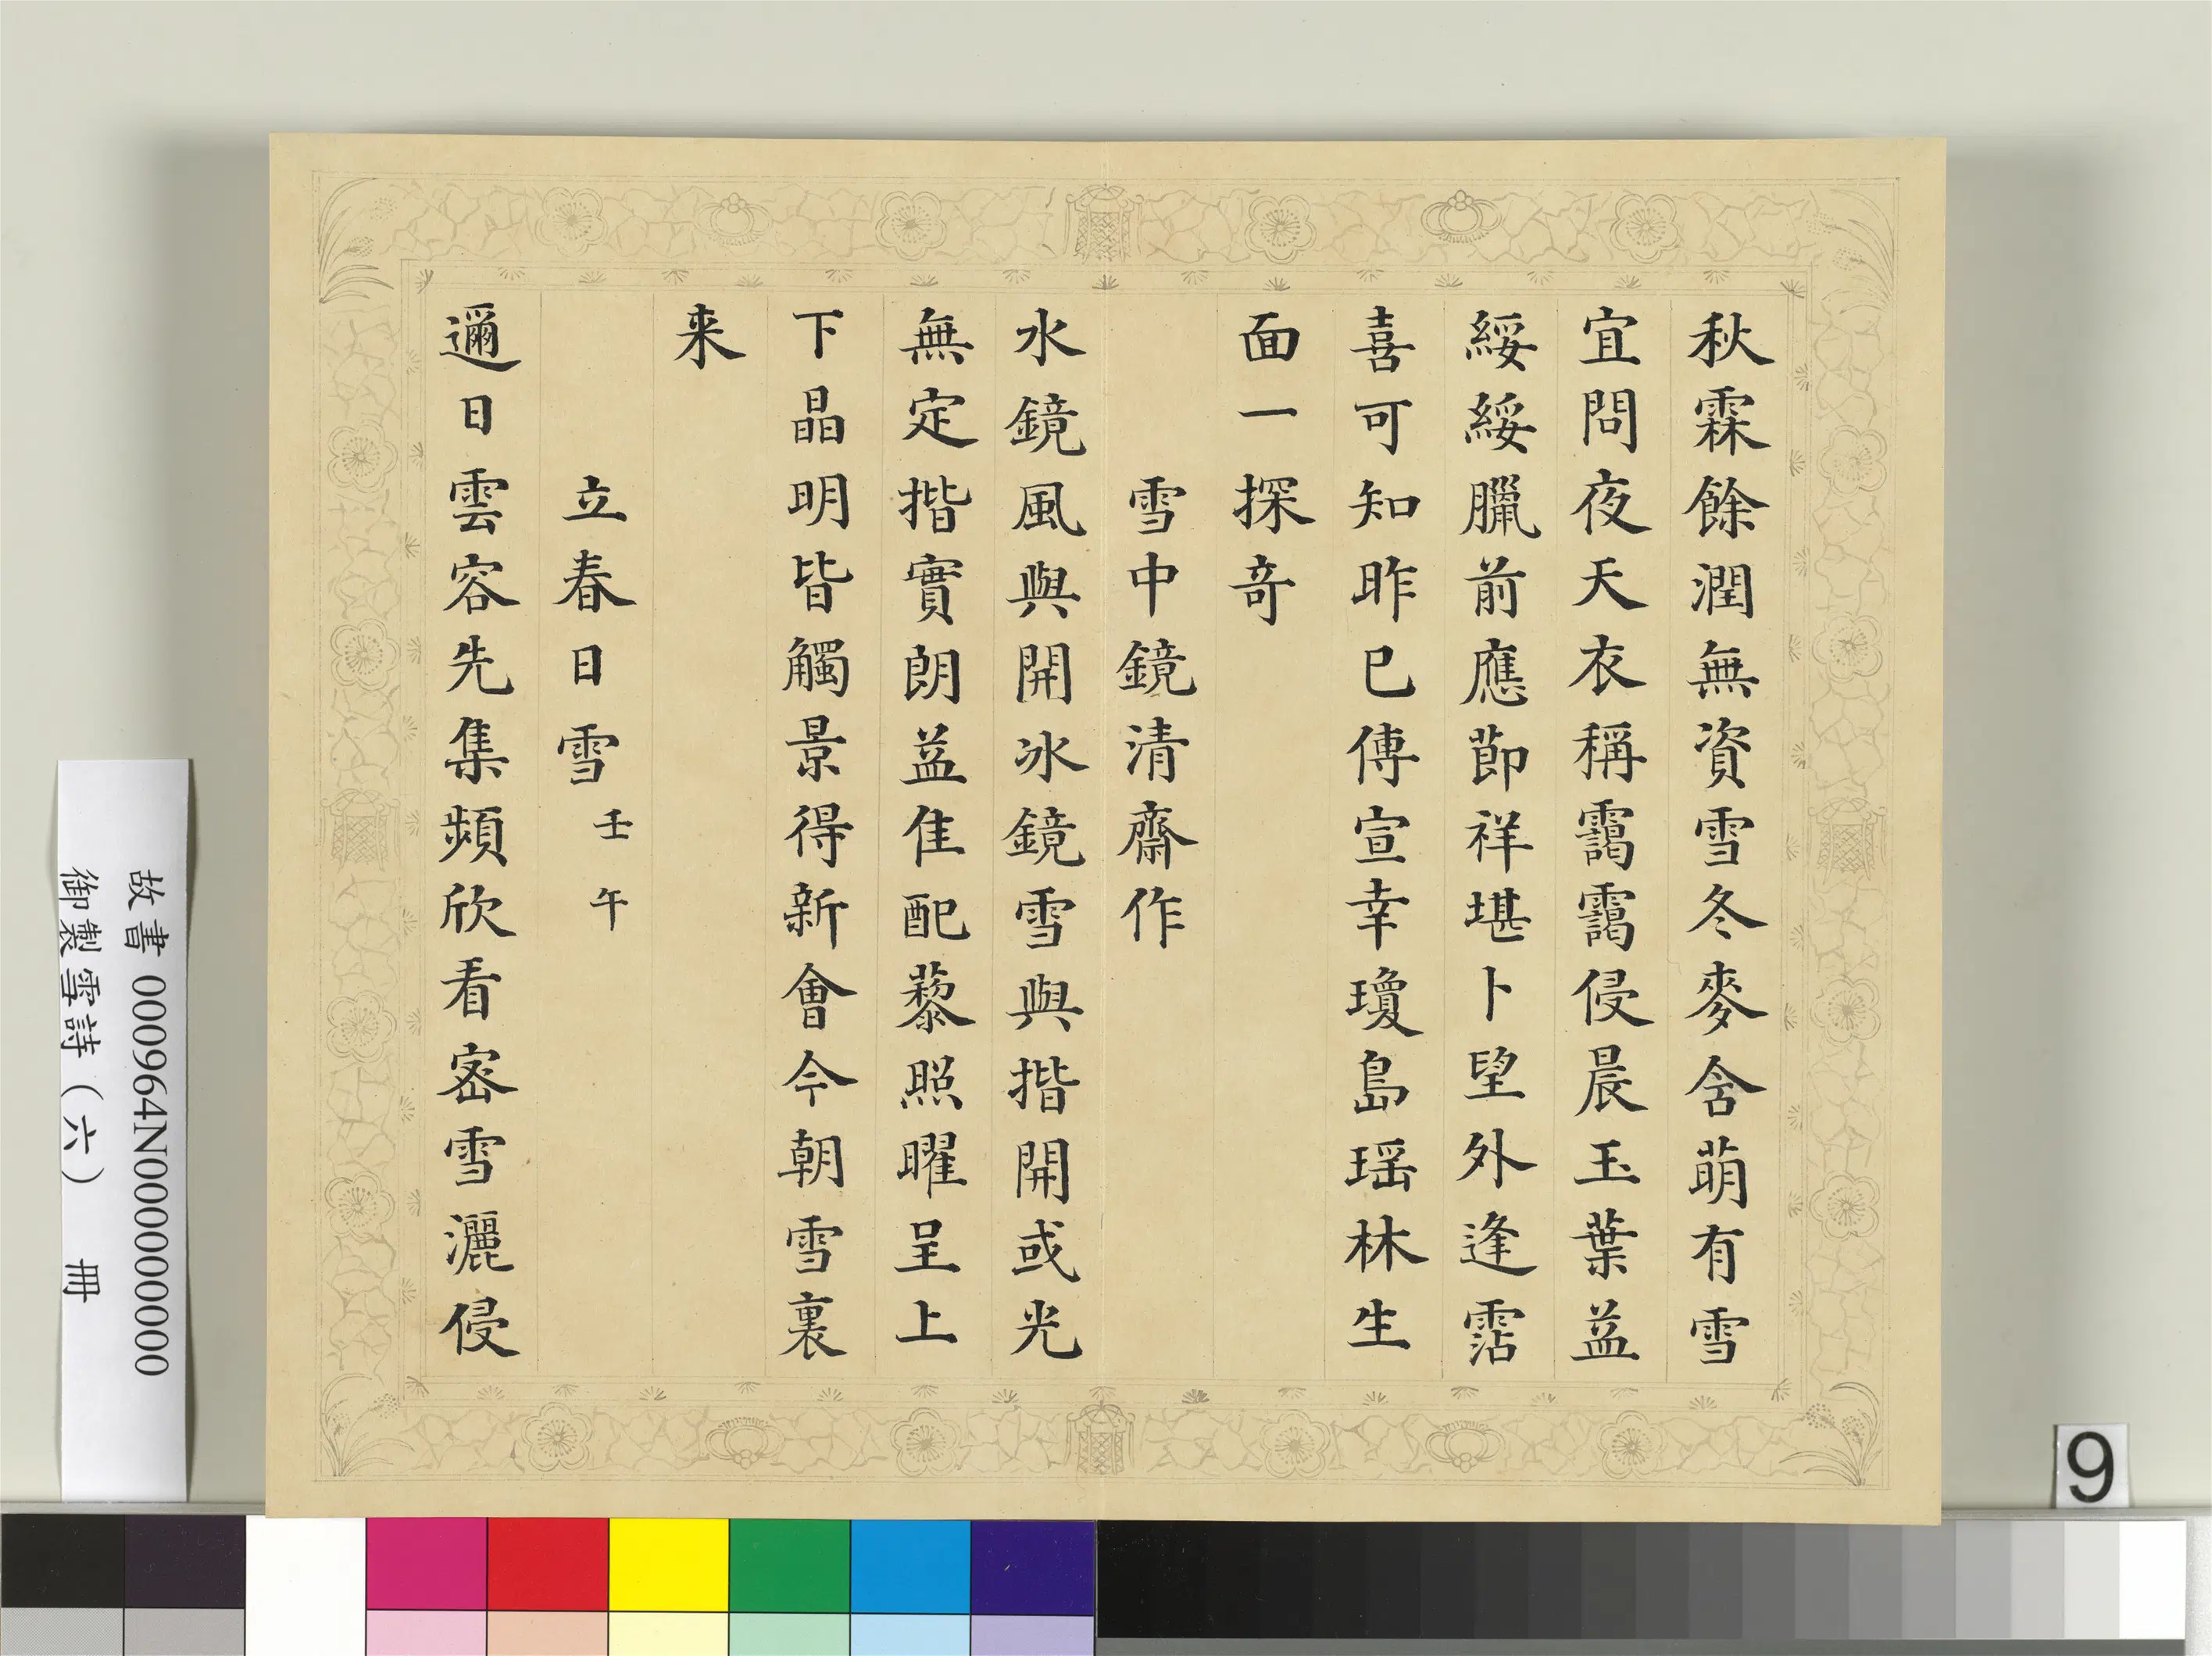 秋霖餘潤無資雪冬麥含萌有雪
宜問夜天衣稱靄靄侵晨玉葉益
綏綏臘前應節祥堪卜望外逢霑
喜可知昨已傳宣幸瓊島瑶林生
面一探竒
雪中鏡清齋作
水鏡風與開冰鏡雪與揩開或光
無定揩實朗益隹配藜照曜呈上
下晶明皆觸景得新會今朝雪裏
来
立春日雪壬午
邇日雲容先集頻欣看密雪灑侵
故書 000964N000000000
御製雪詩（六） 冊
9